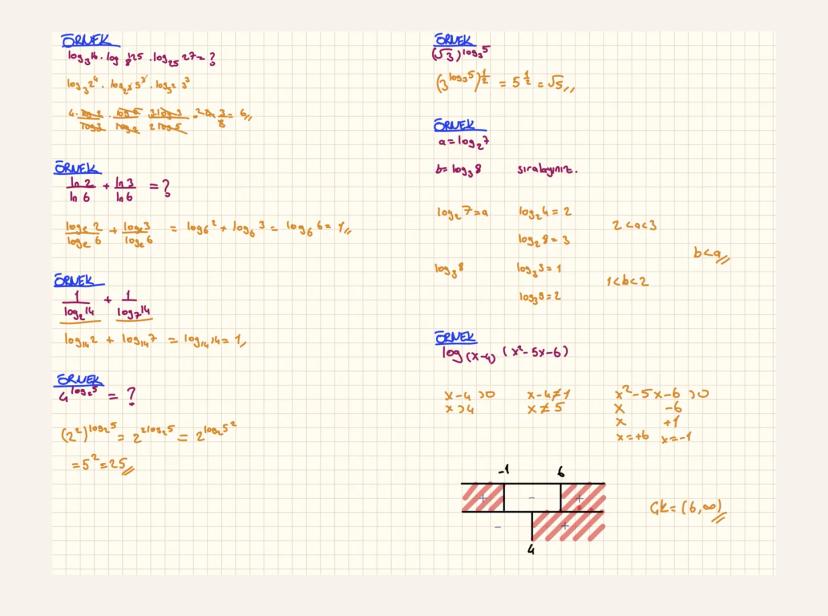 ÖRNEK
log₃16 . log₈125 . log₂₅27 = ?
log₃2⁴ . log₂³5³ . log₅²3³
ÖRNEK
ln 2 / ln 6 + ln 3 / ln 6 = ?
logₑ2 / logₑ6 + logₑ3 / logₑ6 = log₆2 + log₆3 = log₆6 = 1
ÖRNEK
1 / log₂14 + 1 / log₇14
log₁₄2 + log₁₄7 = log₁₄14 = 1
ÖRNEK
4^log₂5 = ?
(2²)^log₂5 = 2^2log₂5 = 2^log₂5²
= 5² = 25
ÖRNEK
(√3)^log₃5
(3^log₃5)^1/2 = 5^1/2 = √5
ÖRNEK
a = log₂7
b = log₃8 sıralayınız.
log₂7 = a log₂4 = 2 2 < a < 3
log₂8 = 3
b < a
log₃8 log₃3 = 1 1 < b < 2
= 2
ÖRNEK
log(x-4) (x²-5x-6)
x-4 > 0 x-4 ≠ 1 x²-5x-6 > 0
x > 4 x ≠ 5 x -6
x +1
x = +6 x = -1
-1 6
+ - +
- +
4
ÇK = (6, ∞)